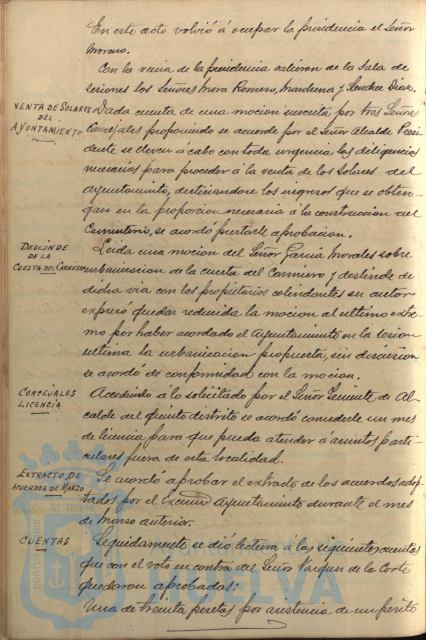 En este acto volvió á ocupar la presidencia el Señor
Moreno.
Con la venia de la presidencia salieron de la Sala de
sesiones los Señores Mora Romero, Marchena y Sánchez Díaz.
VENTA DE SOLARES
DEL
AYUNTAMIENTO
Dada cuenta de una mocion suscrita por tres Señores
Concejales proponiendo se acuerde por el Señor Alcalde Presi
dente se lleven á cabo con toda urgencia las diligencias
necesarias para proceder á la venta de los Solares del
Ayuntamiento, destinandose los ingresos que se obten-
gan en la proporcion necesaria á la construccion del
Cementerio, se acordó prestarle aprobacion.
DESLINDE
DE LA
CUESTA DEL CARNICERO
Leida una mocion del Señor Garcia Morales sobre
urbanizacion de la cuesta del Carnicero y deslinde de
dicha via con los propietarios colindantes su autor
expresó quedar reducida la mocion al ultimo extre
mo por haber acordado el Ayuntamiento en la sesion
ultima la urbanizacion propuesta, sin discusion
se acordo de conformidad con la mocion.
CONCEJALES
LICENCIA
Accediendo á lo solicitado por el Señor Teniente de Al
calde del quinto distrito se acordó concederle un mes
de licencia para que pueda atender á asuntos parti-
culares fuera de esta localidad.
EXTRACTO DE
ACUERDOS DE MARZO
Se acordó aprobar el extracto de los acuerdos adop
tados por el Excmo Ayuntamiento durante el mes
de Marzo anterior.
CUENTAS
Seguidamente se dió lectura á las siguientes cuentas
que con el voto en contra del Señor Vazquez de la Corte
quedaron aprobadas:
Una de treinta pesetas por asistencia de un perito